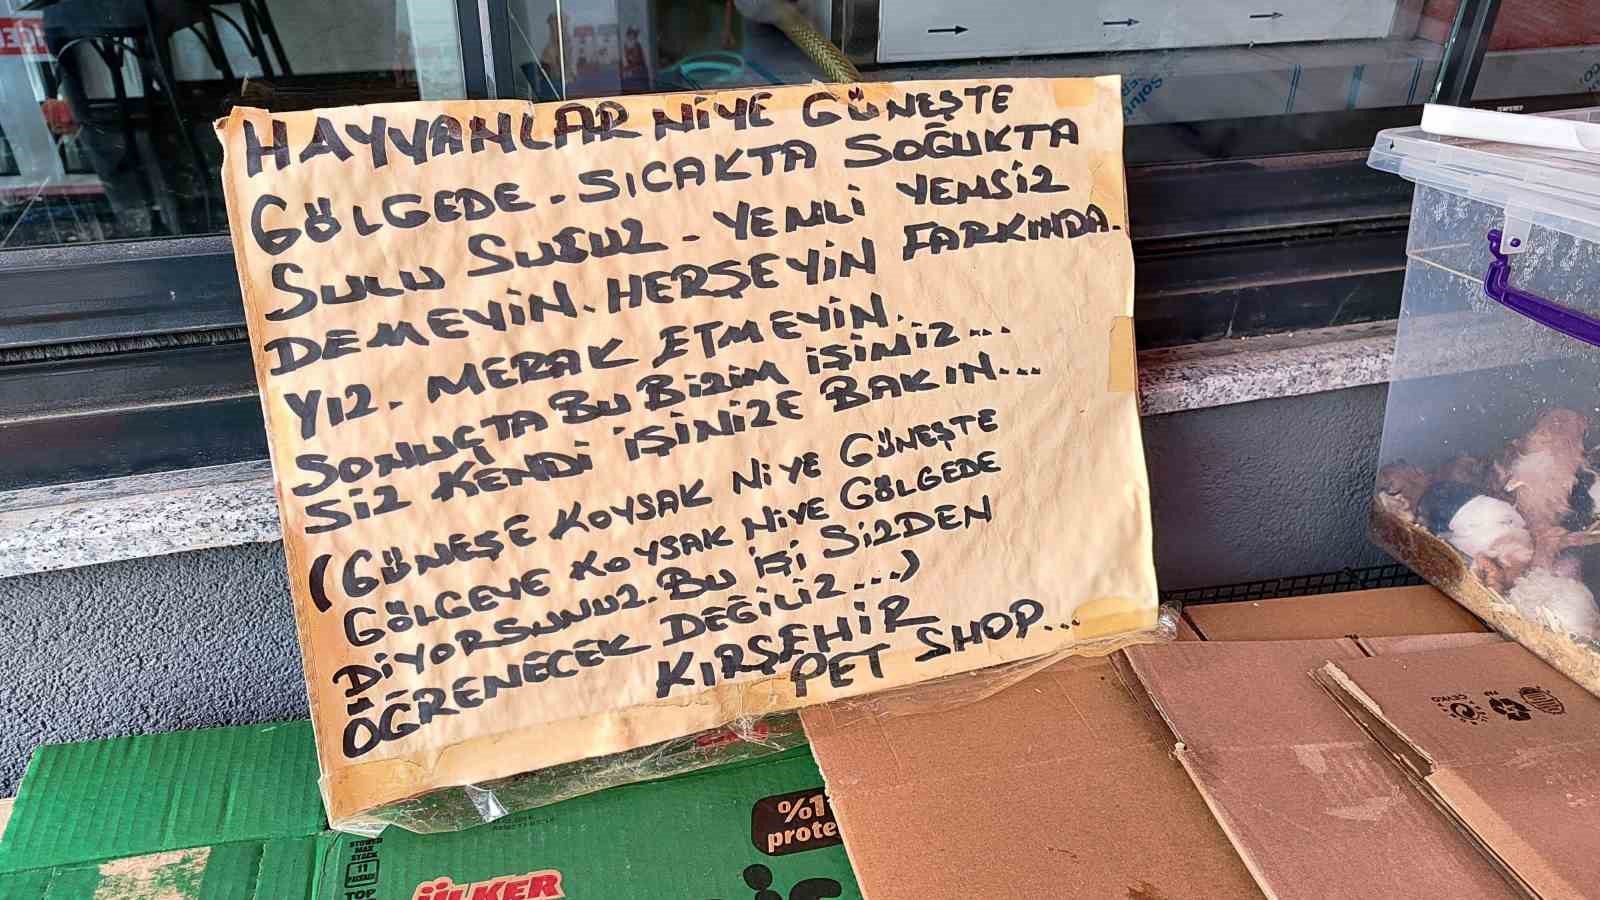 HAYVANLAR NİYE GÜNEŞTE
GÖLGEDE - SICAKTA SOĞUKTA
SULU SUSUZ - YEMLİ YEMSİZ
DEMEYİN. HERŞEYİN FARKINDA-
YIZ. MERAK ETMEYİN.
SONUÇTA BU BİZİM İŞİMİZ...
SİZ KENDİ İŞİNİZE BAKIN...
(GÜNEŞE KOYSAK NİYE GÜNEŞTE
GÖLGEYE KOYSAK NİYE GÖLGEDE
DİYORSUNUZ. BU İŞİ SİZDEN
ÖĞRENECEK DEĞİLİZ...)
KIRŞEHİR
PET SHOP...
%1
prote
STOWED
MAX
STACK
11
PACKAGE
TOP
ÜLKER
TEMPERED